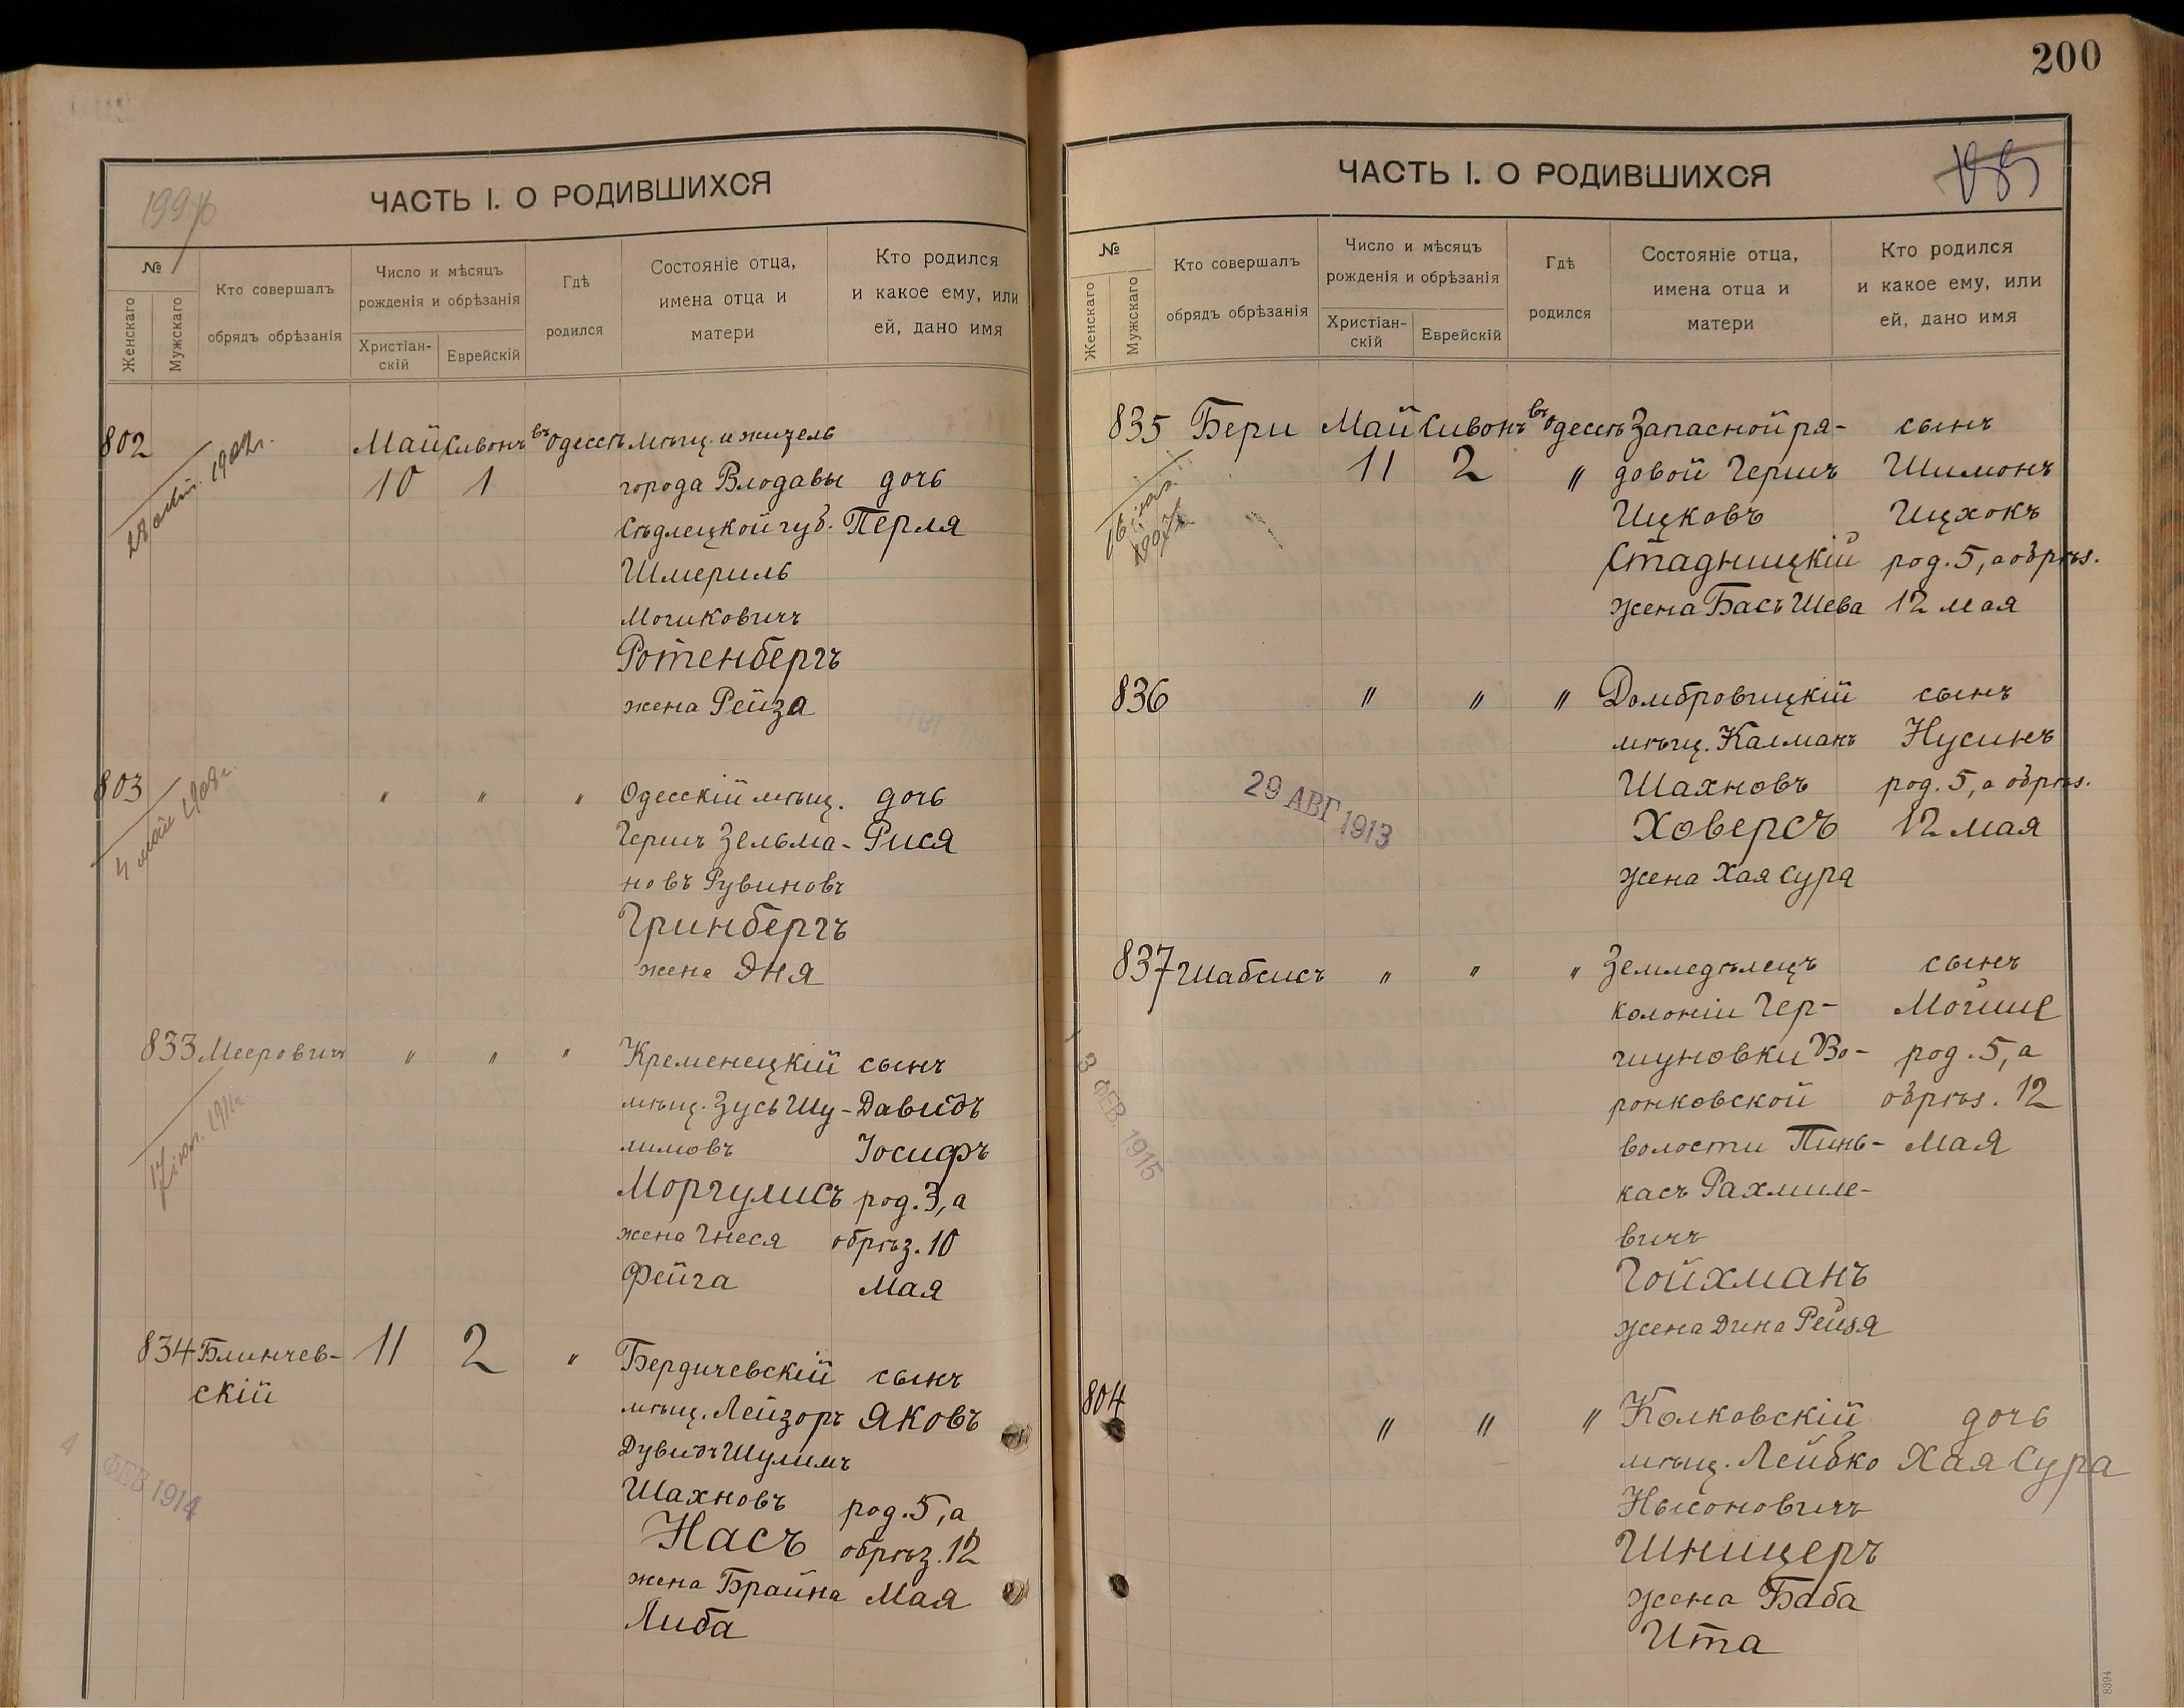 200
ЧАСТЬ I. О РОДИВШИХСЯ
№
Женскаго
Мужскаго
Кто совершалъ
обрядъ обрѣзанія
Число и мѣсяцъ
рожденія и обрѣзанія
Христіан-
скій
Еврейскій
Гдѣ
родился
Состояніе отца,
имена отца и
матери
Кто родился
и какое ему, или
ей, дано имя
802 Май Сивонъ въ Одессѣ мѣщ. и житель
10 1 города Влодавы дочь
Сѣдлецкой губ. Перля
Шмериль
Мошковичъ
Ротенбергъ
жена Рейза
803 " " " Одесскій мѣщ. дочь
4 май 1908г.
Гершъ Зельма- Рися
новъ Рувиновъ
Гринбергъ
жена Эня
833 Мееровичъ " " " Кременецкій сынъ
мѣщ. Зусь Шу- Давидъ
лимовъ Іосифъ
Моргулисъ род. 3, а
жена Гнеся обрѣз. 10
Фейга Мая
834 Блинчев- 11 2 " Бердичевскій сынъ
скій
мѣщ. Лейзоръ Яковъ
Дувидъ Шулимъ
4 ФЕВ 1914
Шахновъ род. 5, а
Насъ обрѣз. 12
жена Брайна Мая
Либа
ЧАСТЬ I. О РОДИВШИХСЯ
№
Женскаго
Мужскаго
Кто совершалъ
обрядъ обрѣзанія
Число и мѣсяцъ
рожденія и обрѣзанія
Христіан-
скій
Еврейскій
Гдѣ
родился
Состояніе отца,
имена отца и
матери
Кто родился
и какое ему, или
ей, дано имя
835 Бери Май Сивонъ въ Одессѣ Запасной ря- сынъ
11 2 " довой Гершъ Шимонъ
Ицковъ Ицхокъ
Стадницкій род. 5, а обрѣз.
жена Бась Шева 12 мая
836 " " " Домбровицкій сынъ
мѣщ. Калманъ Нусинъ
29 АВГ 1913
Шахновъ род. 5, а обрѣз.
Ховерсъ 12 мая
жена Хая Сура
837 Шабсисъ " " " Земледѣлецъ сынъ
колоніи Гер- Мойше
шуновки Во- род. 5, а
3 ФЕВ. 1915
ронковской обрѣз. 12
волости Пинь- Мая
касъ Рахмиле-
вичъ
Гойхманъ
жена Дина Рейзя
804 " " " Колковскій дочь
мѣщ. Лейбко Хая Сура
Нысоновичъ
Шницеръ
жена Баба
Ита
8394